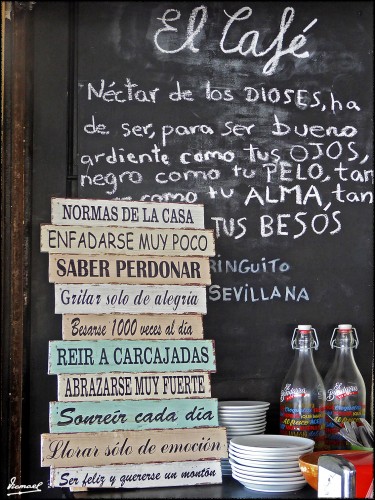 El Café
Néctar de los DIOSES, ha
de ser, para ser bueno
ardiente como tus OJOS,
negro como tu PELO, tan
como tu ALMA, tan
TUS BESOS
RINGUITO
SEVILLANA
NORMAS DE LA CASA
ENFADARSE MUY POCO
SABER PERDONAR
Gritar solo de alegría
Besarse 1000 veces al día
REIR A CARCAJADAS
ABRAZARSE MUY FUERTE
Sonreír cada día
Llorar sólo de emoción
Ser feliz y quererse un montón